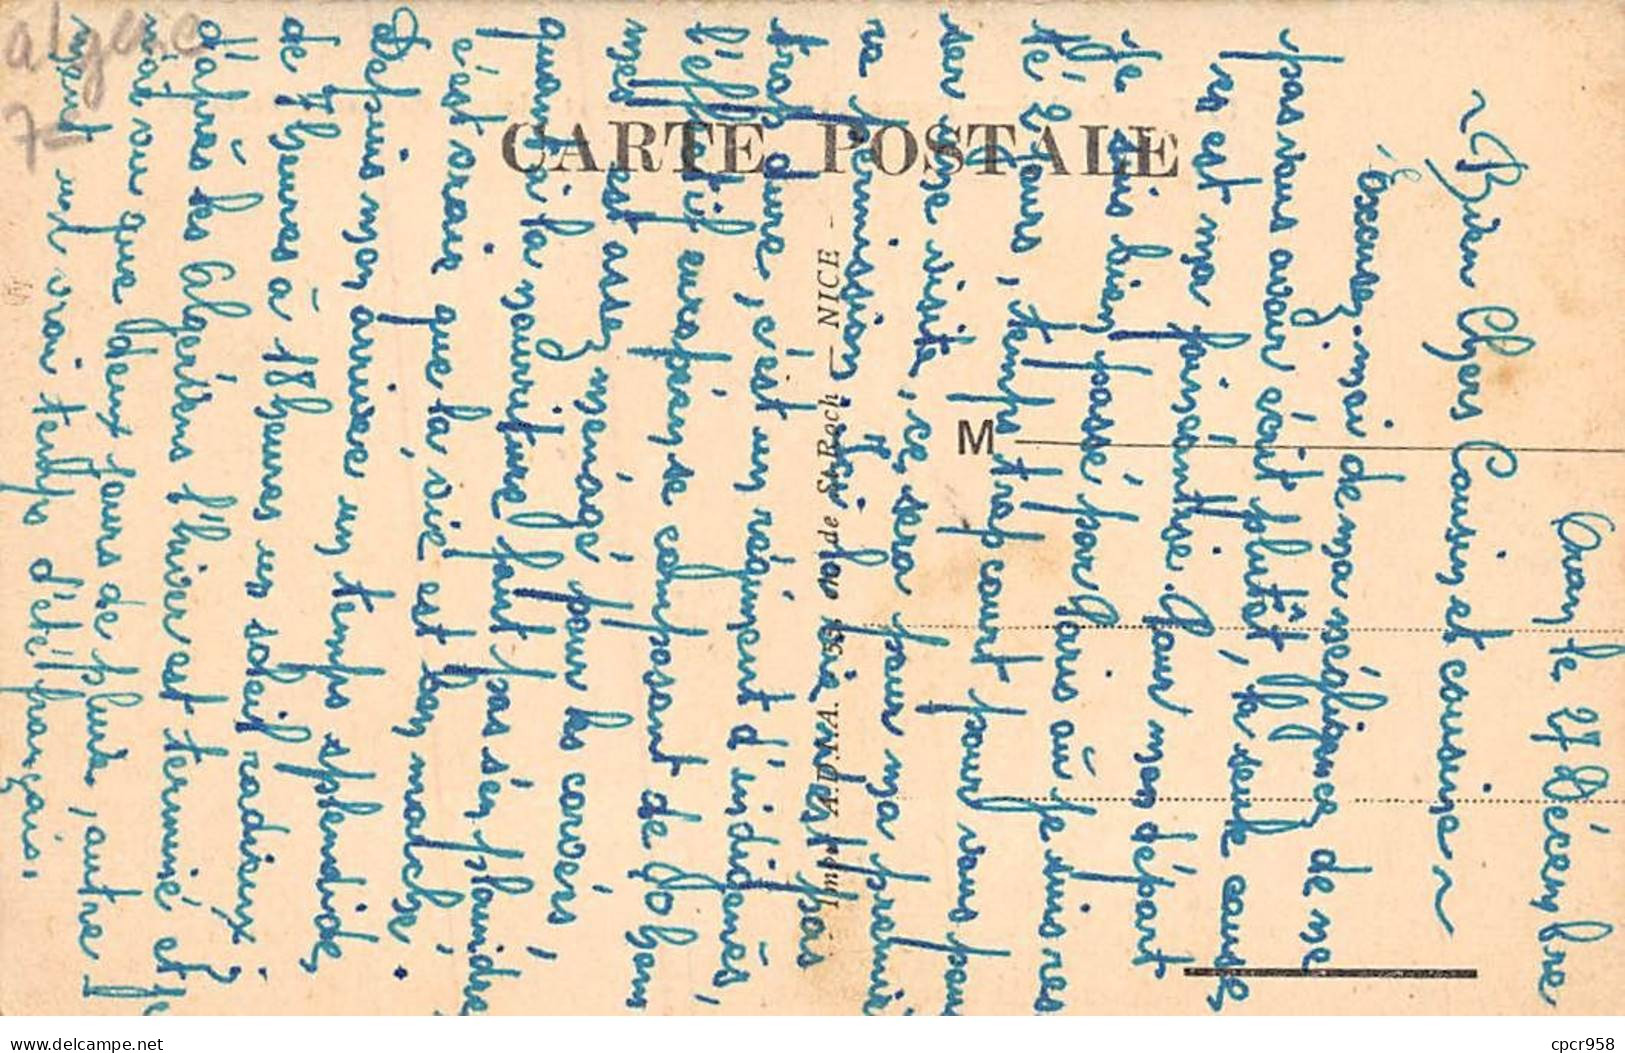 algerie
7-
CARTE POSTALE
M
Imp. A.D.I.A. 55, rue de St-Roch — NICE -
Oran le 27 Décembre
~ Bien Chers Cousin et cousine ~
Excusez-moi de ma négligence de ne
pas vous avoir écrit plutôt, la seule cause
es est ma faisantise. Pour mon départ
je suis bien passé par Paris où je suis res
té 2 jours, temps trop court pour vous pous
ser une visite, ce sera pour ma premiè
re permission. Ici la vie n'est pas
trop dure, c'est un régiment d'indigènes,
l'effectif européen se composant de 90 hom
mes est assez ménagé pour les corvées,
quant à la nourriture faut pas s'en plaindre,
c'est vraie que la vie est bon matché.
Depuis mon arrivée un temps splendide,
de 7 heures à 18 heures un soleil radieux
d'après les Algériens l'hiver est terminé et je
n'ai vu que deux jours de pluie, autre
ment un vrai temps d'été français.
cpcr958
delcampe.net